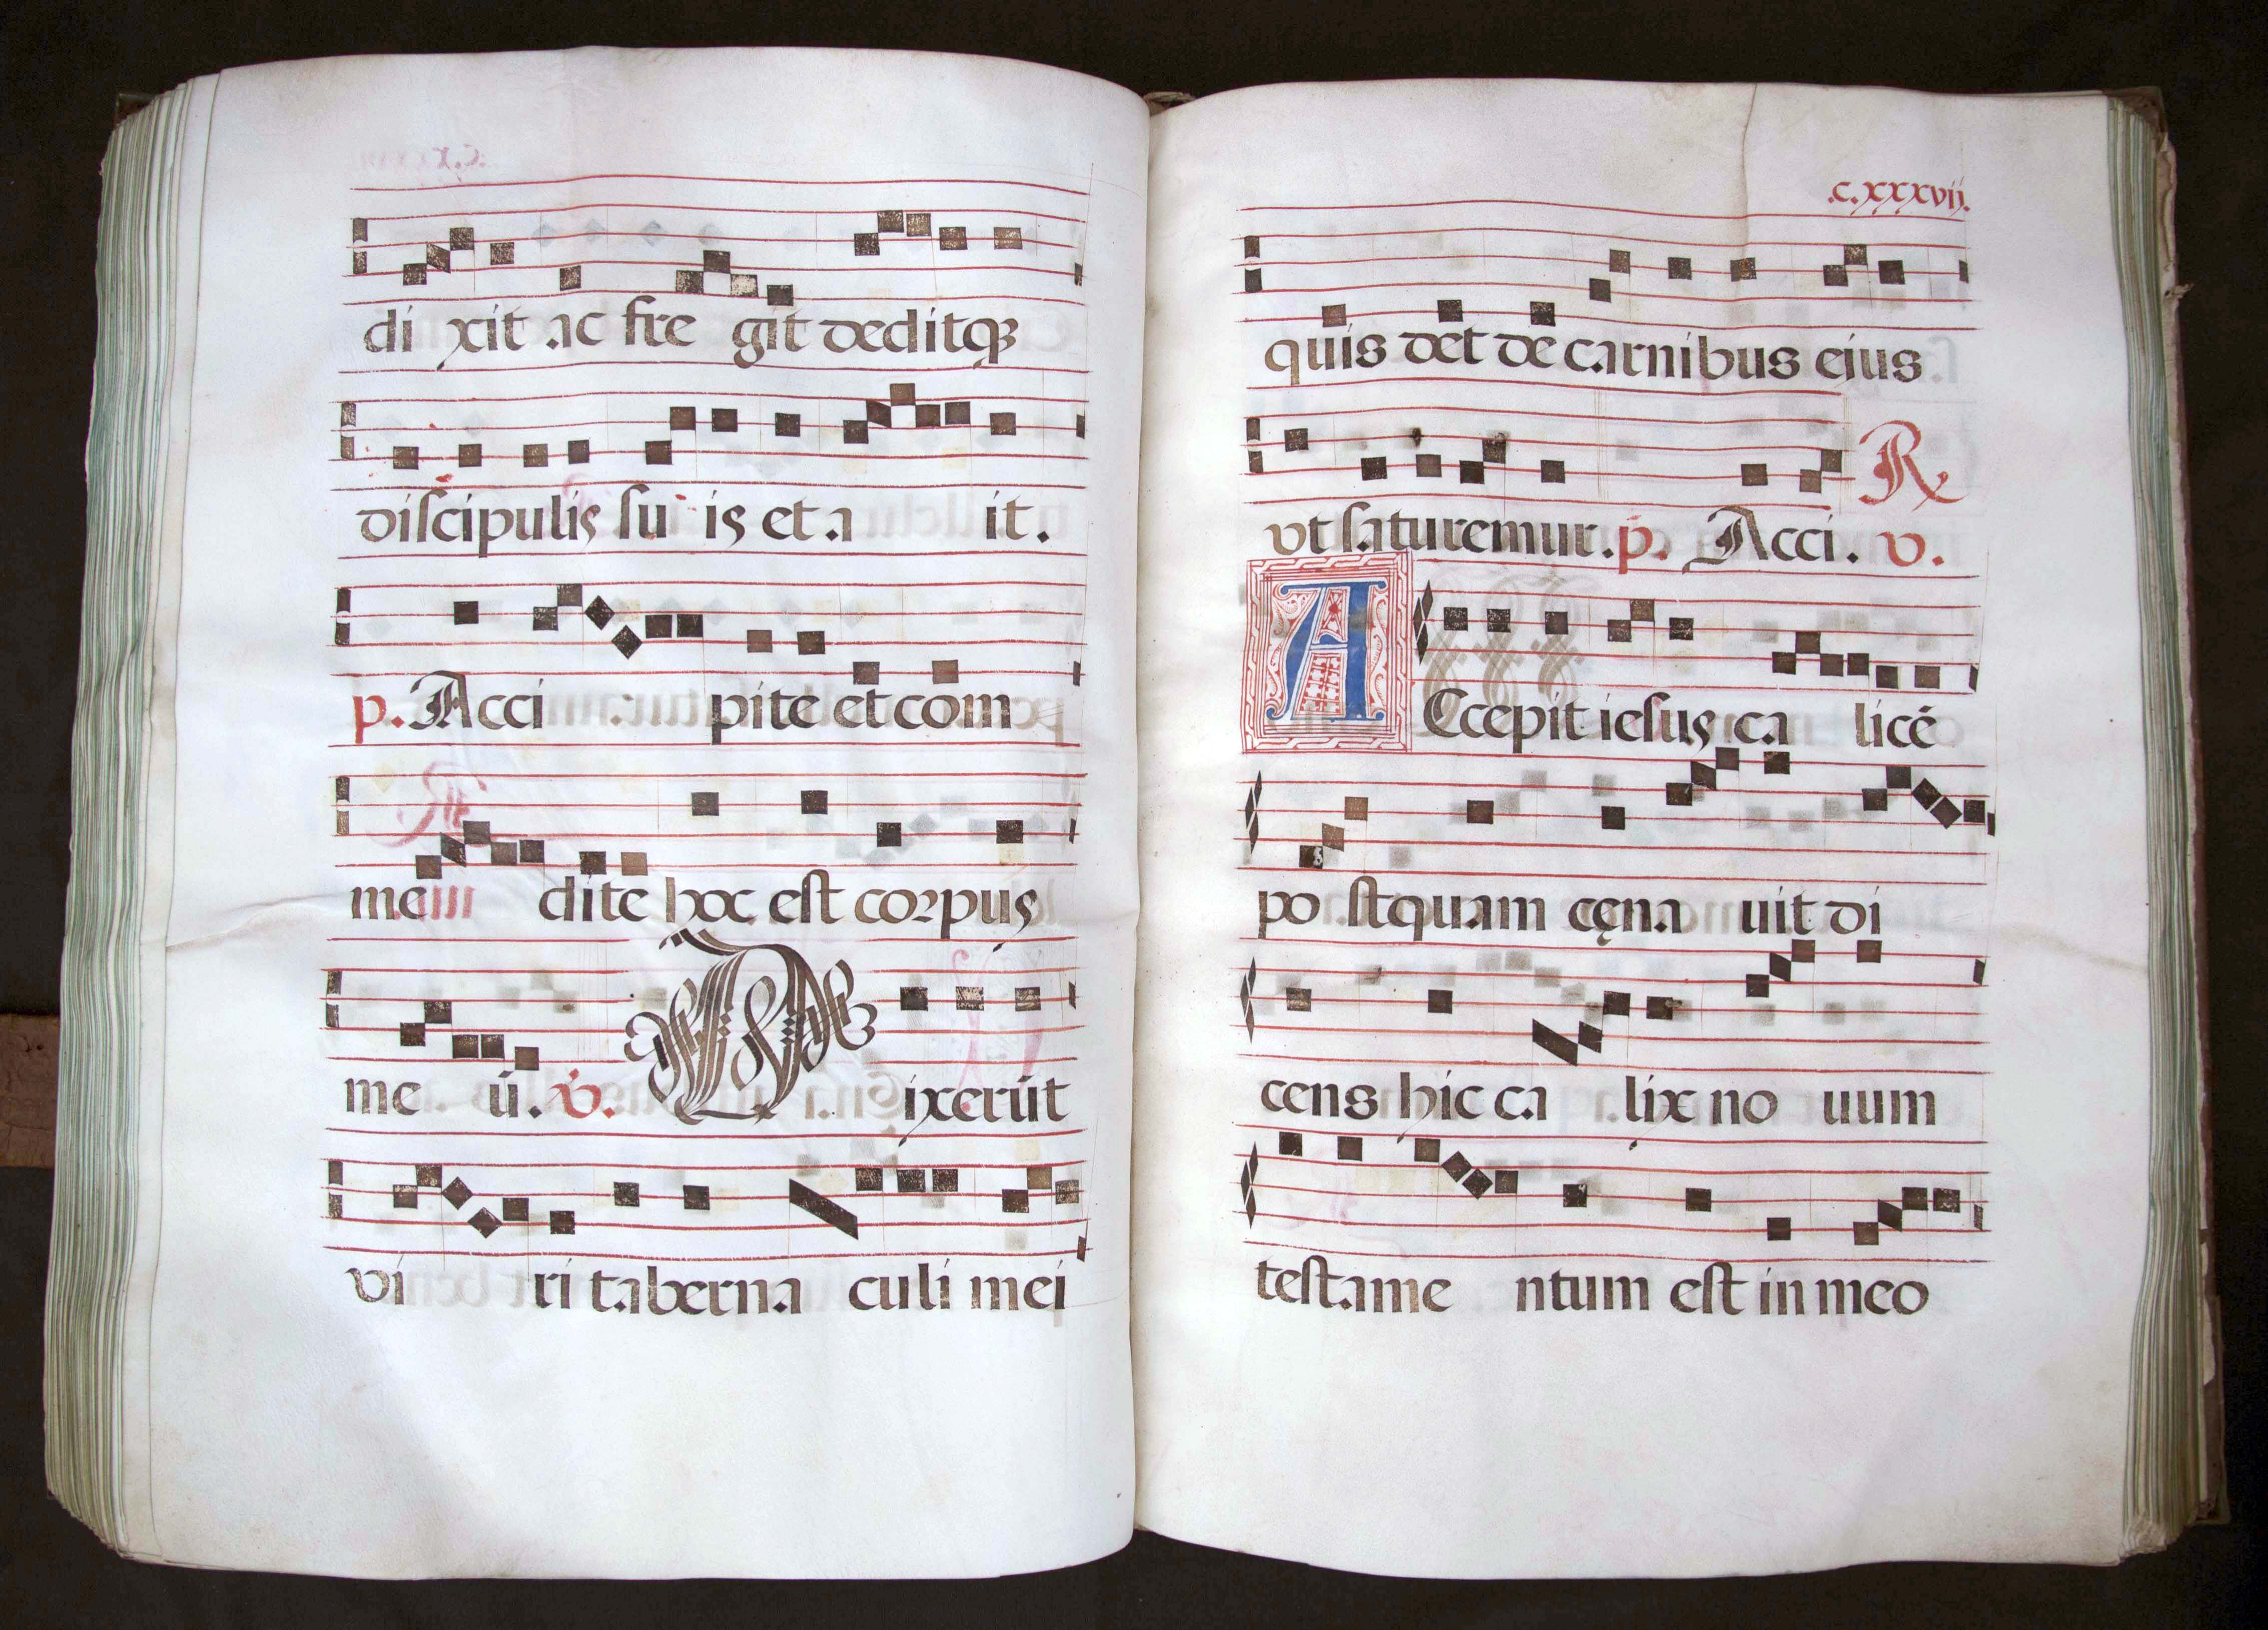 di xit ac fre git deditqꝫ
discipulis su is et a it.
p. Acci pite et com
me dite hoc est corpus
me ū. v̇. D ixerūt
vi ri taberna culi mei
.c.xxxvij.
quis det de carnibus eius
R
vt saturemur. p. Acci. v.
A Ccepit iesus ca licē
po stquam cęna uit di
cens hic ca lix no uum
testame ntum est in meo